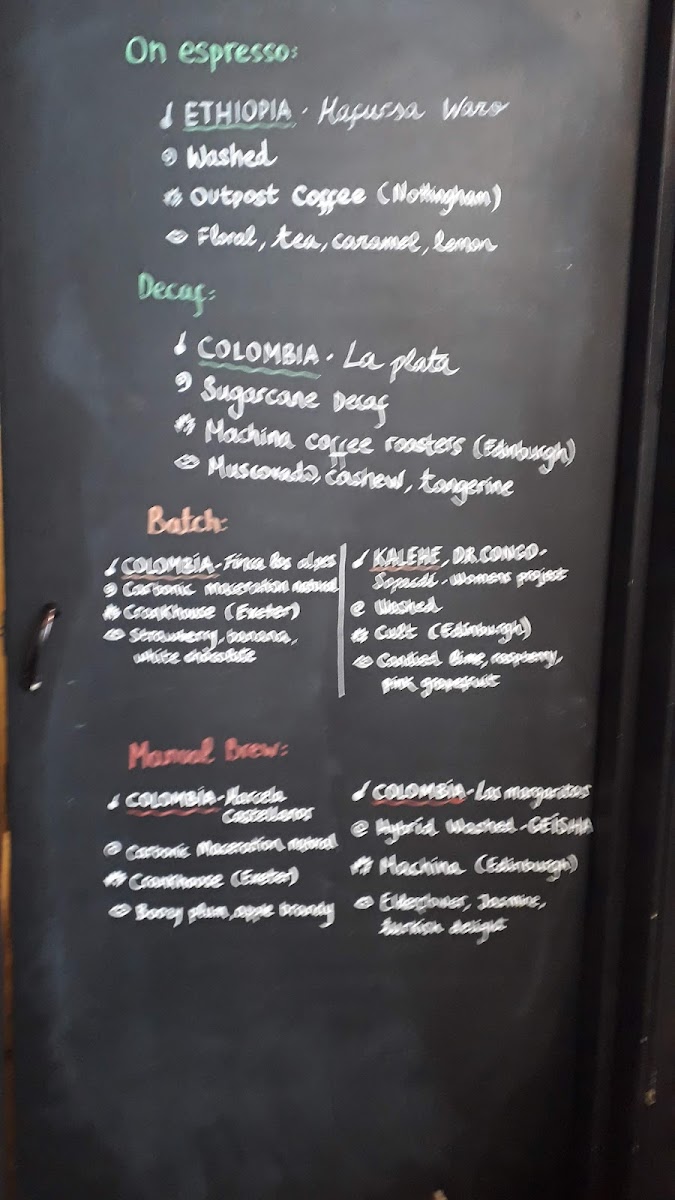 On espresso:
ETHIOPIA · Hafursa Waro
Washed
Outpost Coffee (Nottingham)
Floral, tea, caramel, lemon
Decaf:
COLOMBIA · La plata
Sugarcane Decaf
Machina coffee roasters (Edinburgh)
Muscovado, cashew, tangerine
Batch:
COLOMBIA - Finca los alpes
Carbonic maceration natural
Crankhouse (Exeter)
Strawberry, banana,
white chocolate
KALEHE, DR.CONGO -
- Womens project
Washed
Cult (Edinburgh)
Candied lime, raspberry,
pink grapefruit
Manual Brew:
COLOMBIA - Marcela
Castellanos
Carbonic Maceration natural
Crankhouse (Exeter)
Boozy plum, apple brandy
COLOMBIA - Las margaritas
Hybrid Washed - GEISHA
Machina (Edinburgh)
Elderflower, Jasmine,
turkish delight